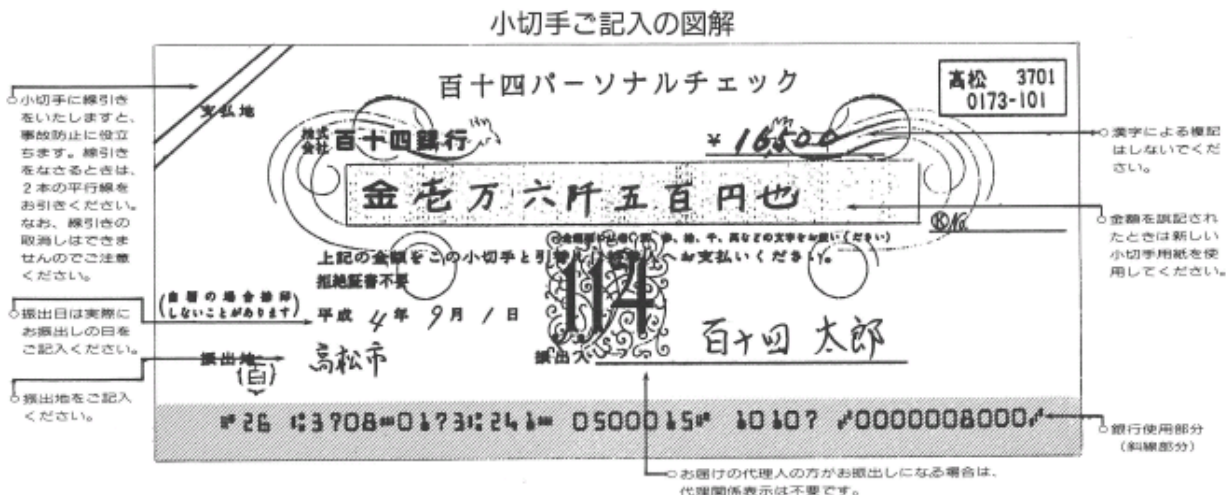 小切手ご記入の図解
小切手に線引き
をいたしますと、
事故防止に役立
ちます。線引き
をなさるときは、
2本の平行線を
お引きください。
なお、線引きの
取消しはできま
せんのでご注意
ください。
振出日は実際に
お振出しの日を
ご記入ください。
振出地をご記入
ください。
百十四パーソナルチェック
高松 3701
0173-101
支払地
株式会社 百十四銀行
¥ 16,500
金壱万六阡五百円也
上記の金額をこの小切手と引替えに持参人へお支払いください。
拒絶証書不要
(自署の場合捺印
しないことがあります)
平成 4 年 9 月 1 日
114
振出地 高松市
(百)
振出人 百十四 太郎
26 3708 0173 241 0500015 10107 0000008000
漢字による複記
はしないでくだ
さい。
金額を誤記され
たときは新しい
小切手用紙を使
用してください。
銀行使用部分
(斜線部分)
お届けの代理人の方がお振出しになる場合は、
代理関係表示は不要です。